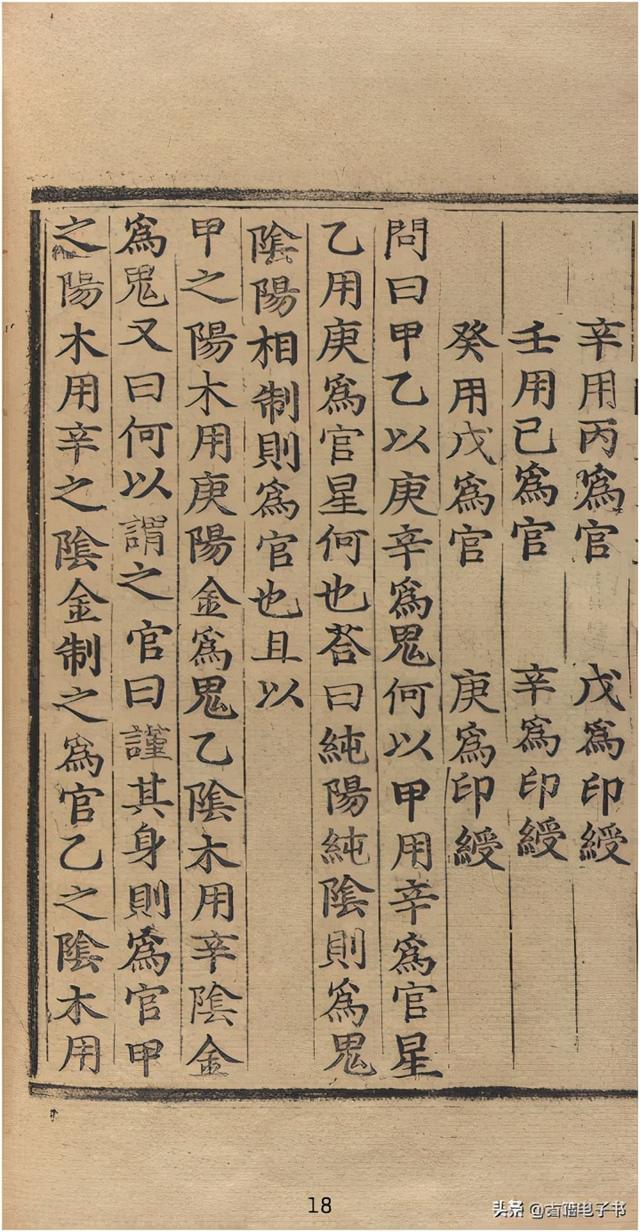 辛用丙爲官　戊爲印綬
壬用己爲官　辛爲印綬
癸用戊爲官　庚爲印綬
問曰甲乙以庚辛爲鬼何以甲用辛爲官星
乙用庚爲官星何也荅曰純陽純陰則爲鬼
陰陽相制則爲官也且以
甲之陽木用庚陽金爲鬼乙陰木用辛陰金
爲鬼又曰何以謂之官曰謹其身則爲官甲
之陽木用辛之陰金制之爲官乙之陰木用
18
头条 @古籍电子书